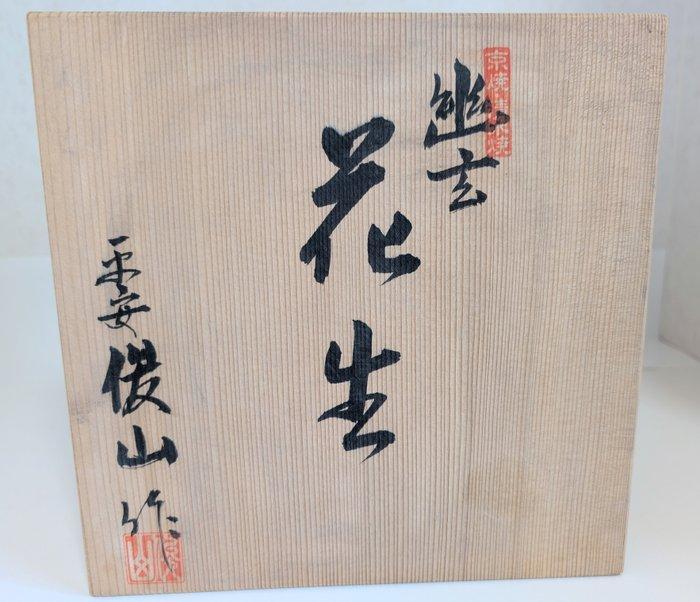 京焼・清水焼
幽玄
花生
平安 俊山 作
俊山